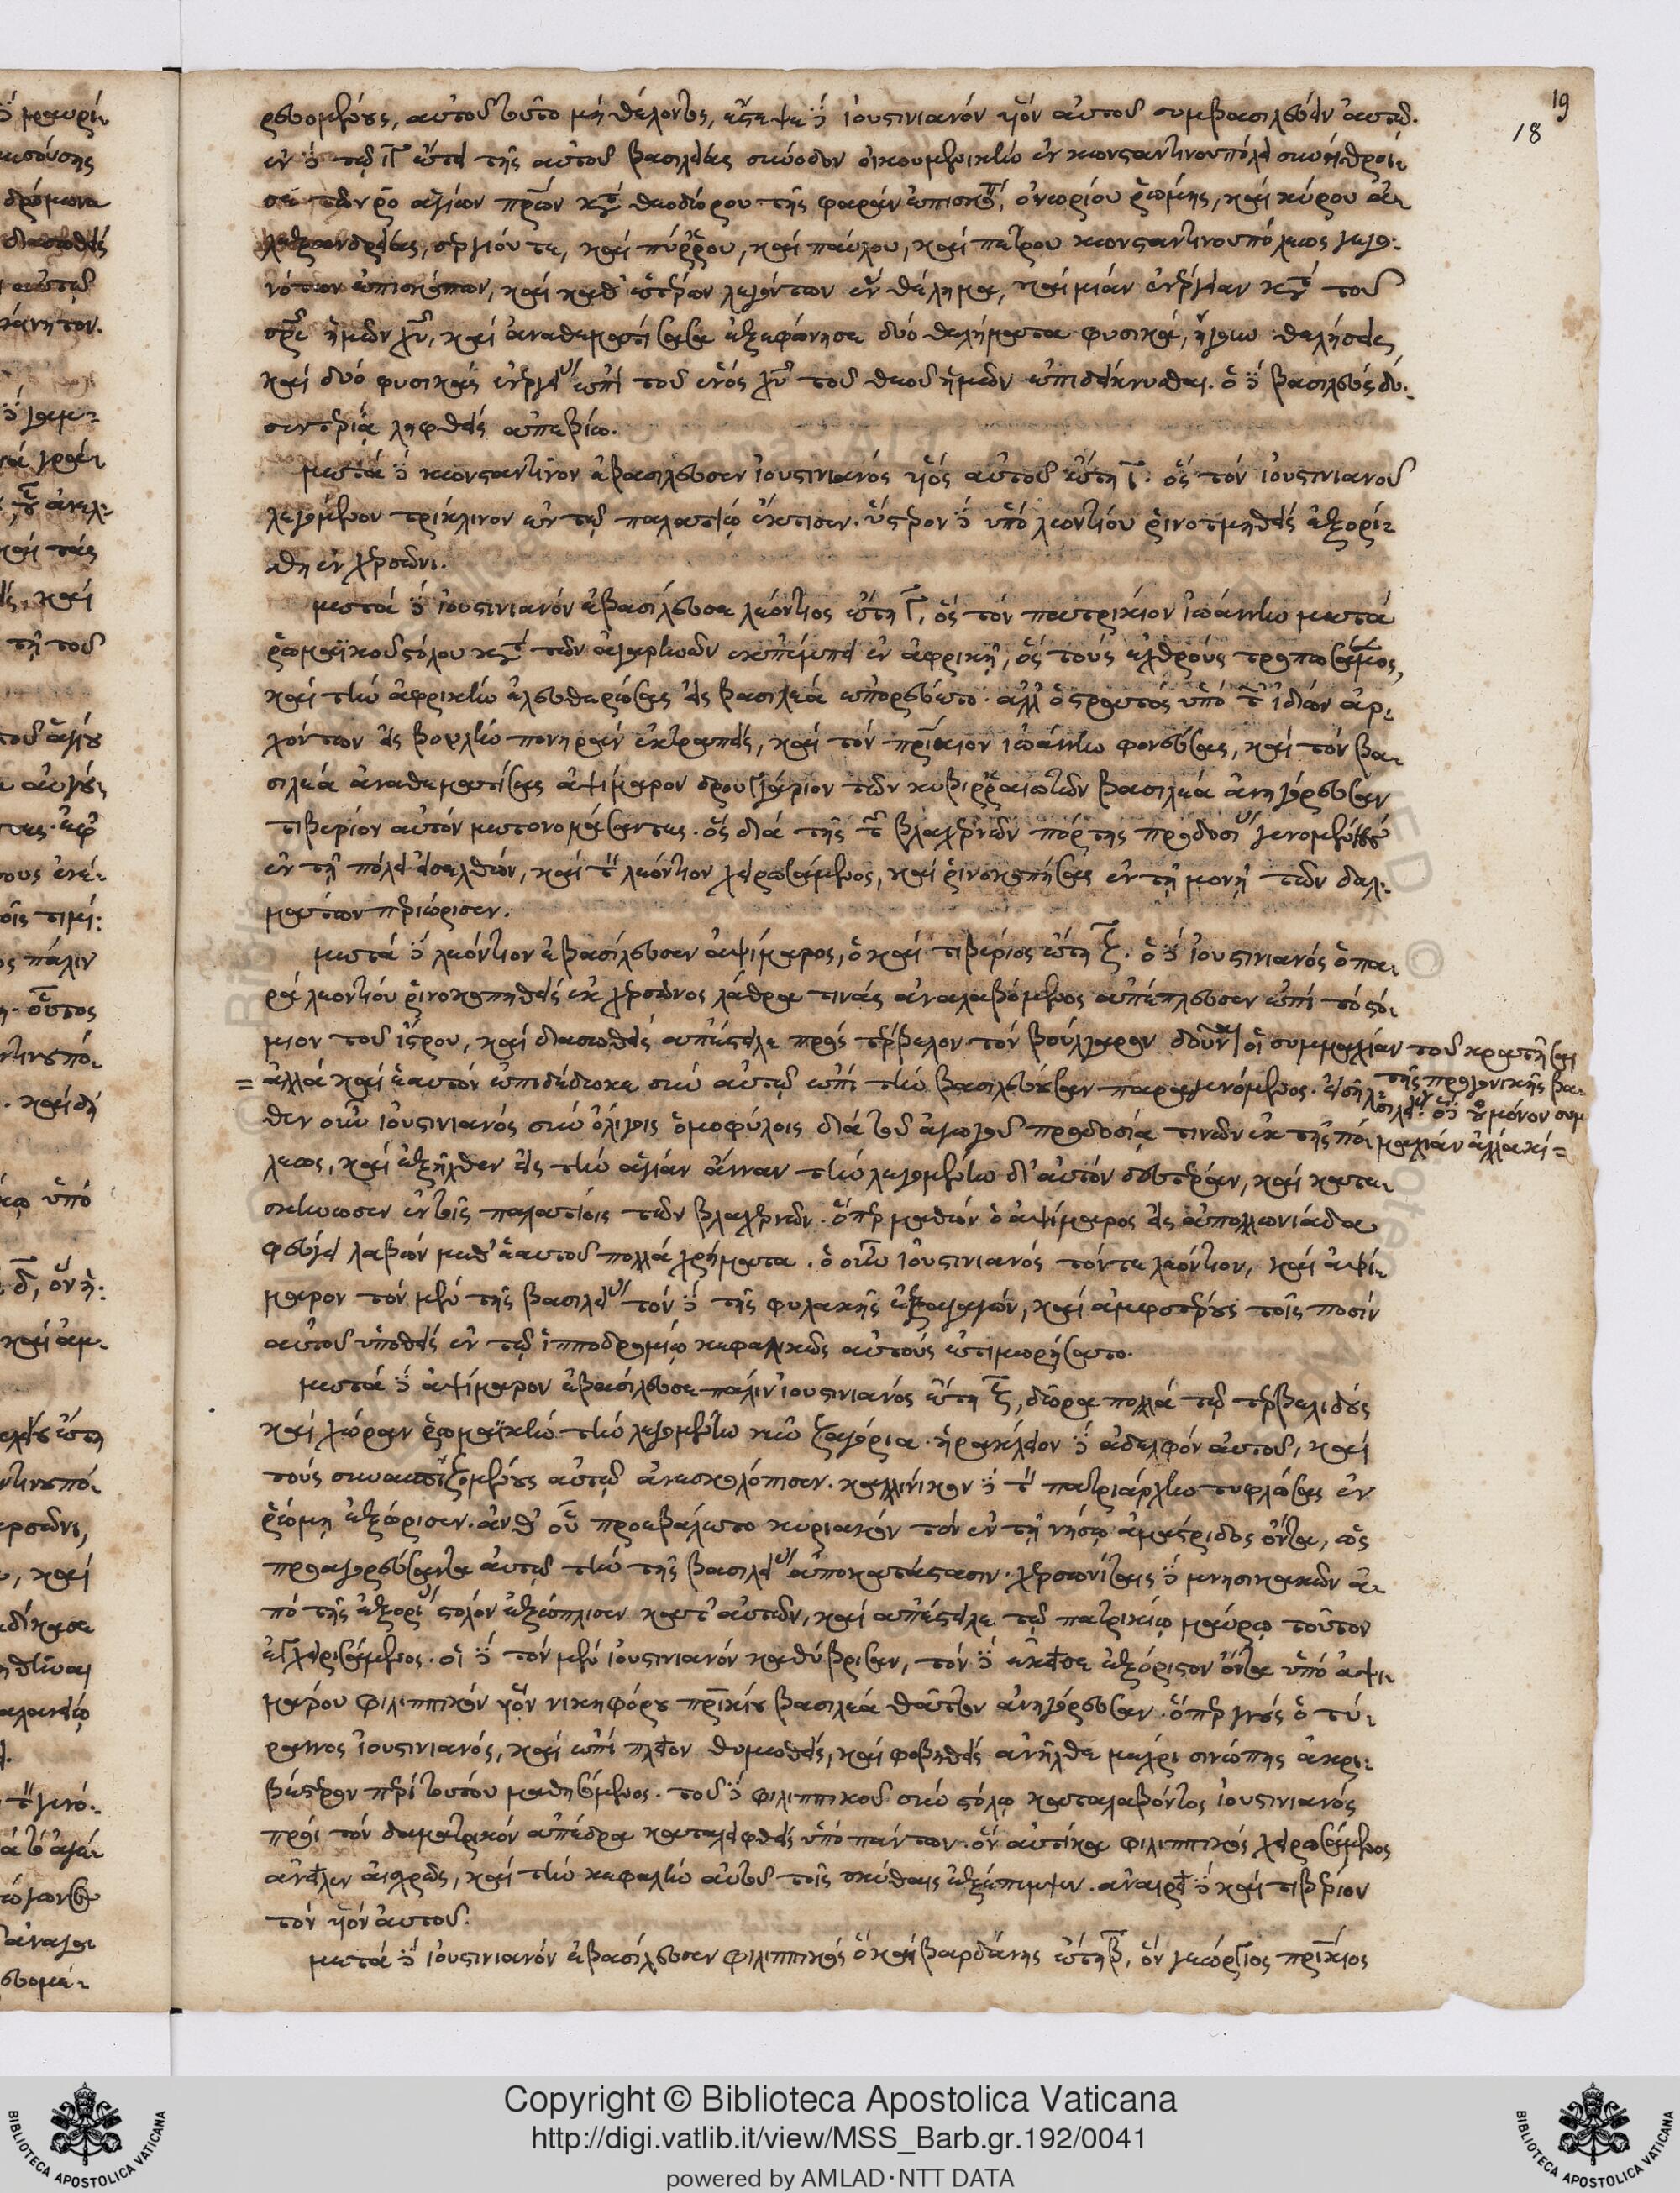 19
18
ρευομένους, αὐτοῦ τοῦτο μὴ θέλοντος, ἔστεψε δὲ ἰουστινιανὸν υἱὸν αὐτοῦ συμβασιλεύειν αὐτῷ.
ἐν δὲ τῷ ιγ ἔτει τῆς αὐτοῦ βασιλείας σύνοδον οἰκουμενικὴν ἐν κωνσταντινουπόλει συνήθροι-
σε τῶν ρο ἁγίων πρων κατὰ θεοδώρου τῆς φαρὰν ἐπισκόπ, ὀνωρίου ῥώμης, καὶ κύρου ἀ-
λεξανδρείας, σεργίου τε, καὶ πύρρου, καὶ παύλου, καὶ πέτρου κωνσταντινουπόλεως γεγο-
νότων ἐπισκόπων, καὶ καθ' ἑτέρων λεγόντων ἓν θέλημα, καὶ μίαν ἐνέργειαν κατὰ τοῦ
σρς ἡμῶν χυ, καὶ ἀναθεματίσασα ἐξεφώνησε δύο θελήματα φυσικὰ, ἤγουν θελήσεις
καὶ δύο φυσικὰς ἐνεργείας ἐπὶ τοῦ ἑνὸς χυ τοῦ θεοῦ ἡμῶν ἐπιδείκνυσθαι. ὁ δὲ βασιλεὺς δυ-
σεντερίᾳ ληφθεὶς ἀπεβίω.
μετὰ δὲ κωνσταντῖνον ἐβασίλευσεν ἰουστινιανὸς υἱὸς αὐτοῦ ἔτη ι. ὃς τὸν ἰουστινιανοῦ
λεγόμενον τρίκλινον ἐν τῷ παλατίῳ ἔκτισεν. ὕστερον δὲ ὑπὸ λεοντίου ῥινοτμηθεὶς ἐξορί-
σθη ἐν χερσῶνι.
μετὰ δὲ ἰουστινιανὸν ἐβασίλευσε λεόντιος ἔτη γ, ὃς τὸν πατρίκιον ἰωάννην μετὰ
ῥωμαϊκοῦ στόλου κατὰ τῶν ἀγαρηνῶν ἐκπέμπει ἐν ἀφρικῇ, ὃς τοὺς ἐχθροὺς τροπωσάμενος,
καὶ τὴν ἀφρικὴν ἐλευθερώσας εἰς βασιλέα ἐπορεύετο. ἀλλ' ὁ στρατὸς ὑπὸ τῶν ἰδίων ἀρ-
χόντων εἰς βουλὴν πονηρὰν ἐκτραπεὶς, καὶ τὸν πρίκιον ἰωάννην φονεύσας, καὶ τὸν βα-
σιλέα ἀναθεματίσας ἀψίμαρον δρουγγάριον τῶν κυβιρραιωτῶν βασιλέα ἀνηγόρευσαν
τιβέριον αὐτὸν μετονομάσαντες. ὃς διὰ τῆς τῶν βλαχερνῶν πόρτης προδοσίας γενομένης
ἐν τῇ πόλει εἰσελθὼν, καὶ τὸν λεόντιον χειρωσάμενος, καὶ ῥινοκοπήσας ἐν τῇ μονῇ τῶν δαλ-
μάτων περιώρισεν.
μετὰ δὲ λεόντιον ἐβασίλευσεν ἀψίμαρος, ὁ καὶ τιβέριος ἔτη ζ. ὁ δὲ ἰουστινιανὸς ὁ πα-
ρὰ λεοντίου ῥινοκοπηθεὶς ἐκ χερσῶνος λάθρα τινὰς ἀναλαβόμενος ἀπέπλευσεν ἐπὶ τὸ στό-
μιον τοῦ ἴστρου, καὶ διασωθεὶς ἀπέστειλε πρὸς τέρβελον τὸν βούλγαρον δοῦναι οἱ συμμαχίαν τοῦ κρατῆσαι
τῆς προγονικῆς βα-
σιλείας. ὁ δὲ οὐ μόνον συμ
μαχίαν ἀλλὰ κὶ =
= ἀλλὰ καὶ ἑαυτὸν ἐπιδέδωκε σὺν αὐτῷ ἐπὶ τὴν βασιλεύουσαν παραγενόμενος. εἰσῆλ-
θεν οὖν ἰουστινιανὸς σὺν ὀλίγοις ὁμοφύλοις διὰ τοῦ ἀγωγοῦ προδοσίᾳ τινῶν ἐκ τῆς πό-
λεως, καὶ ἐξῆλθεν εἰς τὴν ἁγίαν ἄνναν τὴν λεγομένην δι' αὐτὸν δευτέραν, καὶ κατε-
σκήνωσεν ἐν τοῖς παλατίοις τῶν βλαχερνῶν. ὅπερ μαθὼν ὁ ἀψίμαρος εἰς ἀπολλωνιάδα
φεύγει λαβὼν μεθ' ἑαυτοῦ πολλὰ χρήματα. ὁ οὖν ἰουστινιανὸς τόν τε λεόντιον, καὶ ἀψί-
μαρον τὸν μὲν τῆς βασιλείας τὸν δὲ τῆς φυλακῆς ἐξαγαγὼν, καὶ ἀμφοτέρους τοῖς ποσὶν
αὐτοῦ ὑποθεὶς ἐν τῷ ἱπποδρομίῳ κεφαλικῶς αὐτοὺς ἐτιμωρήσατο.
μετὰ δὲ ἀψίμαρον ἐβασίλευσε πάλιν ἰουστινιανὸς ἔτη ϛ, δῶρα πολλὰ τῷ τερβελιδοὺς
καὶ χώραν ῥωμαϊκὴν τὴν λεγομένην νῦν ζαγόρια. ἡράκλειον δὲ ἀδελφὸν αὐτοῦ, καὶ
τοὺς συνασπιζομένους αὐτῷ ἀνεσκολόπισεν. καλλίνικον δὲ τὸν πατριάρχην τυφλώσας ἐν
ῥώμῃ ἐξώρισεν. ἀνθ' οὗ προεβάλετο κυριακὸν τὸν ἐν τῇ νήσῳ ἀμάστριδος ὄντα, ὡς
προαγορεύσαντα αὐτῷ τὴν τῆς βασιλείας ἀποκατάστασιν. χερσωνίταις δὲ μνησικακῶν ἀ-
πὸ τῆς ἐξορίας στόλον ἐξώπλισεν κατ' αὐτῶν, καὶ ἀπέστειλε τῷ πατρικίῳ μαύρῳ τοῦτον
ἐγχειρισάμενος. οἱ δὲ τὸν μὲν ἰουστινιανὸν καθύβρισαν, τὸν δὲ ἐκεῖσε ἐξόριστον ὄντα ὑπὸ ἀψι-
μάρου φιλιππικὸν υἱὸν νικηφόρου πρικίου βασιλέα θᾶττον ἀνηγόρευσαν. ὅπερ γνοὺς ὁ τύ-
ραννος ἰουστινιανὸς, καὶ ἐπὶ πλέον θυμωθεὶς, καὶ φοβηθεὶς ἀνῆλθε μέχρι σινώπης ἀκρι-
βέστερον περὶ τούτου μαθησόμενος. τοῦ δὲ φιλιππικοῦ σὺν στόλῳ καταλαβόντος ἰουστινιανὸς
πρὸς τὸν δαματρικὸν ἀπέδρα καταλειφθεὶς ὑπὸ πάντων. ὃν αὐτίκα φιλιππικὸς χειρωσάμενος
ἀνεῖλεν αἰσχρῶς, καὶ τὴν κεφαλὴν αὐτοῦ τοῖς σκύθαις ἐξέπεμψεν. ἀναιρεῖ δὲ καὶ τιβέριον
τὸν υἱὸν αὐτοῦ.
μετὰ δὲ ἰουστινιανὸν ἐβασίλευσεν φιλιππικὸς ὁ καὶ βαρδάνης ἔτη β, ὃν γεώργιος πρίκιος
Copyright © Biblioteca Apostolica Vaticana
http://digi.vatlib.it/view/MSS_Barb.gr.192/0041
powered by AMLAD·NTT DATA
BIBLIOTECA APOSTOLICA VATICANA
BIBLIOTECA APOSTOLICA VATICANA